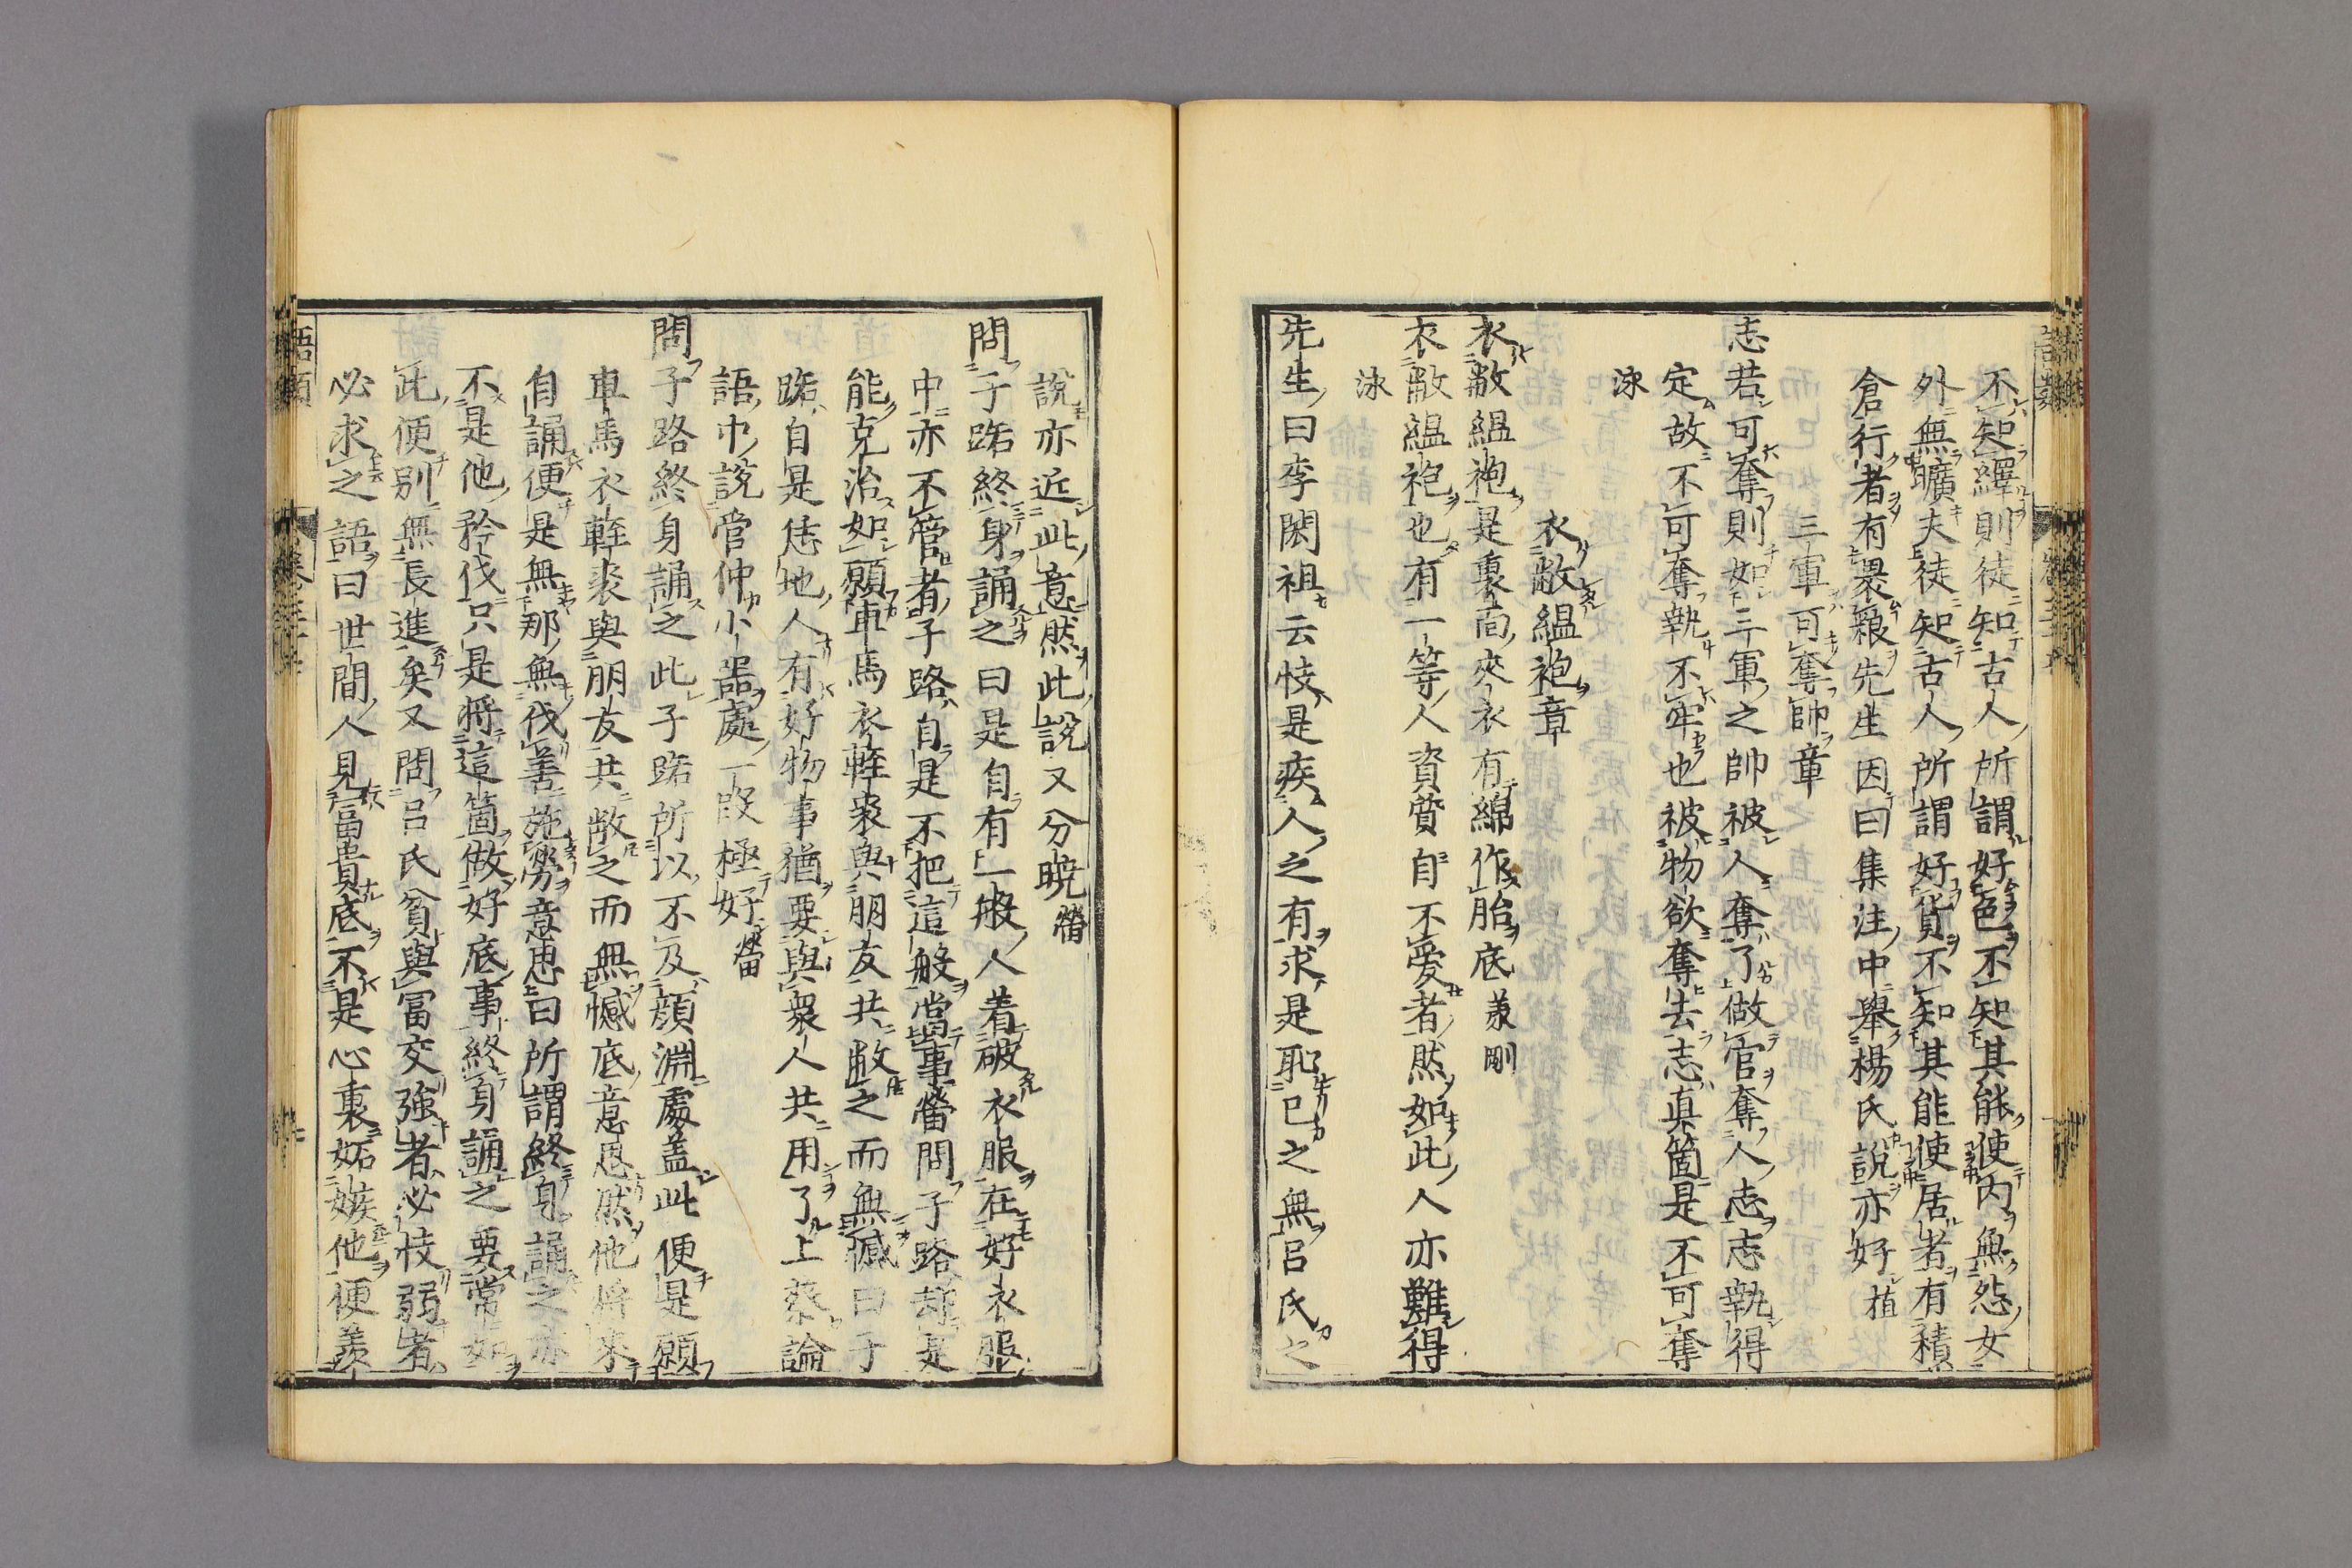 不知繹則徒知古人所謂好色不知其能使内無怨女
外無曠夫徒知古人所謂好貨不知其能使居者有積
倉行者有裹粮先生因曰集注中舉楊氏說亦好植
三軍可奪帥章
志若可奪則如三軍之帥被人奪了做官奪人志志執得
定故不可奪執不牢也被物欲奪去志真箇是不可奪
泳
衣敝緼袍章
衣敝緼袍是裏面夾衣有綿作胎底義剛
衣敝緼袍也有一等人資質自不愛者然如此人亦難得
泳
先生曰李閎祖云忮是疾人之有求是恥己之無呂氏之
說亦近此意然此說又分曉㽦
問子路終身誦之曰是自有一般人着破衣服在好衣服
中亦不管者子路自是不把這般當事㽦問子路却是
能克治如願車馬衣輕裘與朋友共敝之而無憾曰子
路自是恁地人有好物事猶要與衆人共用了上蔡論
語中說管仲小噐處一段極好㽦
問子路終身誦之此子路所以不及顔淵處盖此便是願
車馬衣輕裘與朋友共敝之而無憾底意思然他將來
自誦便是無那無伐善施勞意思曰所謂終身誦之亦
不是他矜伐只是將這箇做好底事終身誦之要常如
此便别無長進矣又問呂氏貧與冨交強者必忮弱者
必求之語曰世間人見富貴底不是心裏妬嫉他便羨
語類